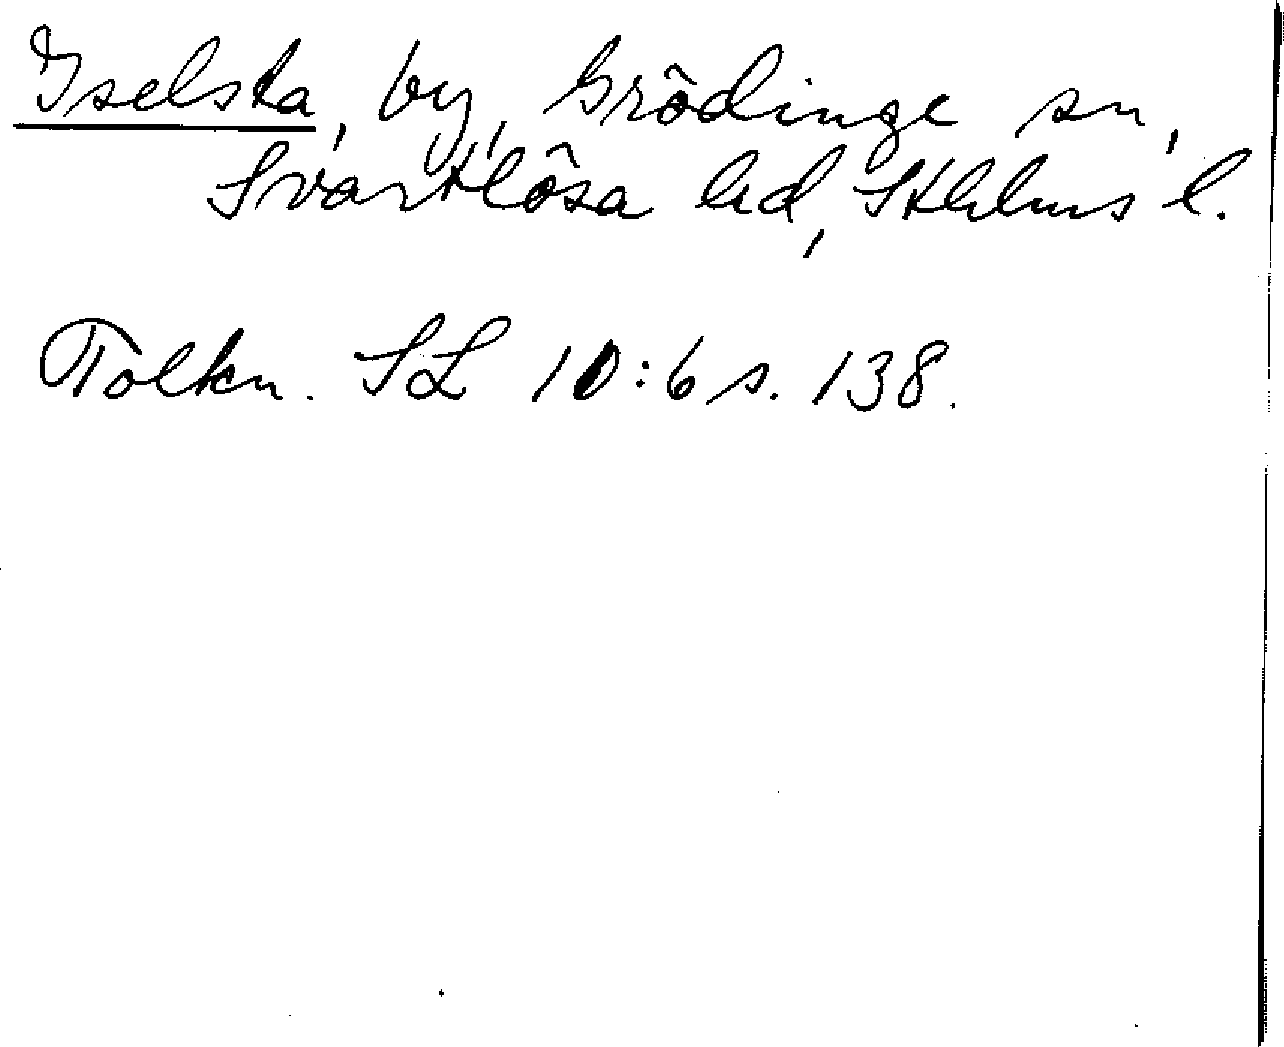 Iselsta, by, Grödinge sn,
Svartlösa hd, Sthlms l.
Tolkn. SL 10:6 s. 138.